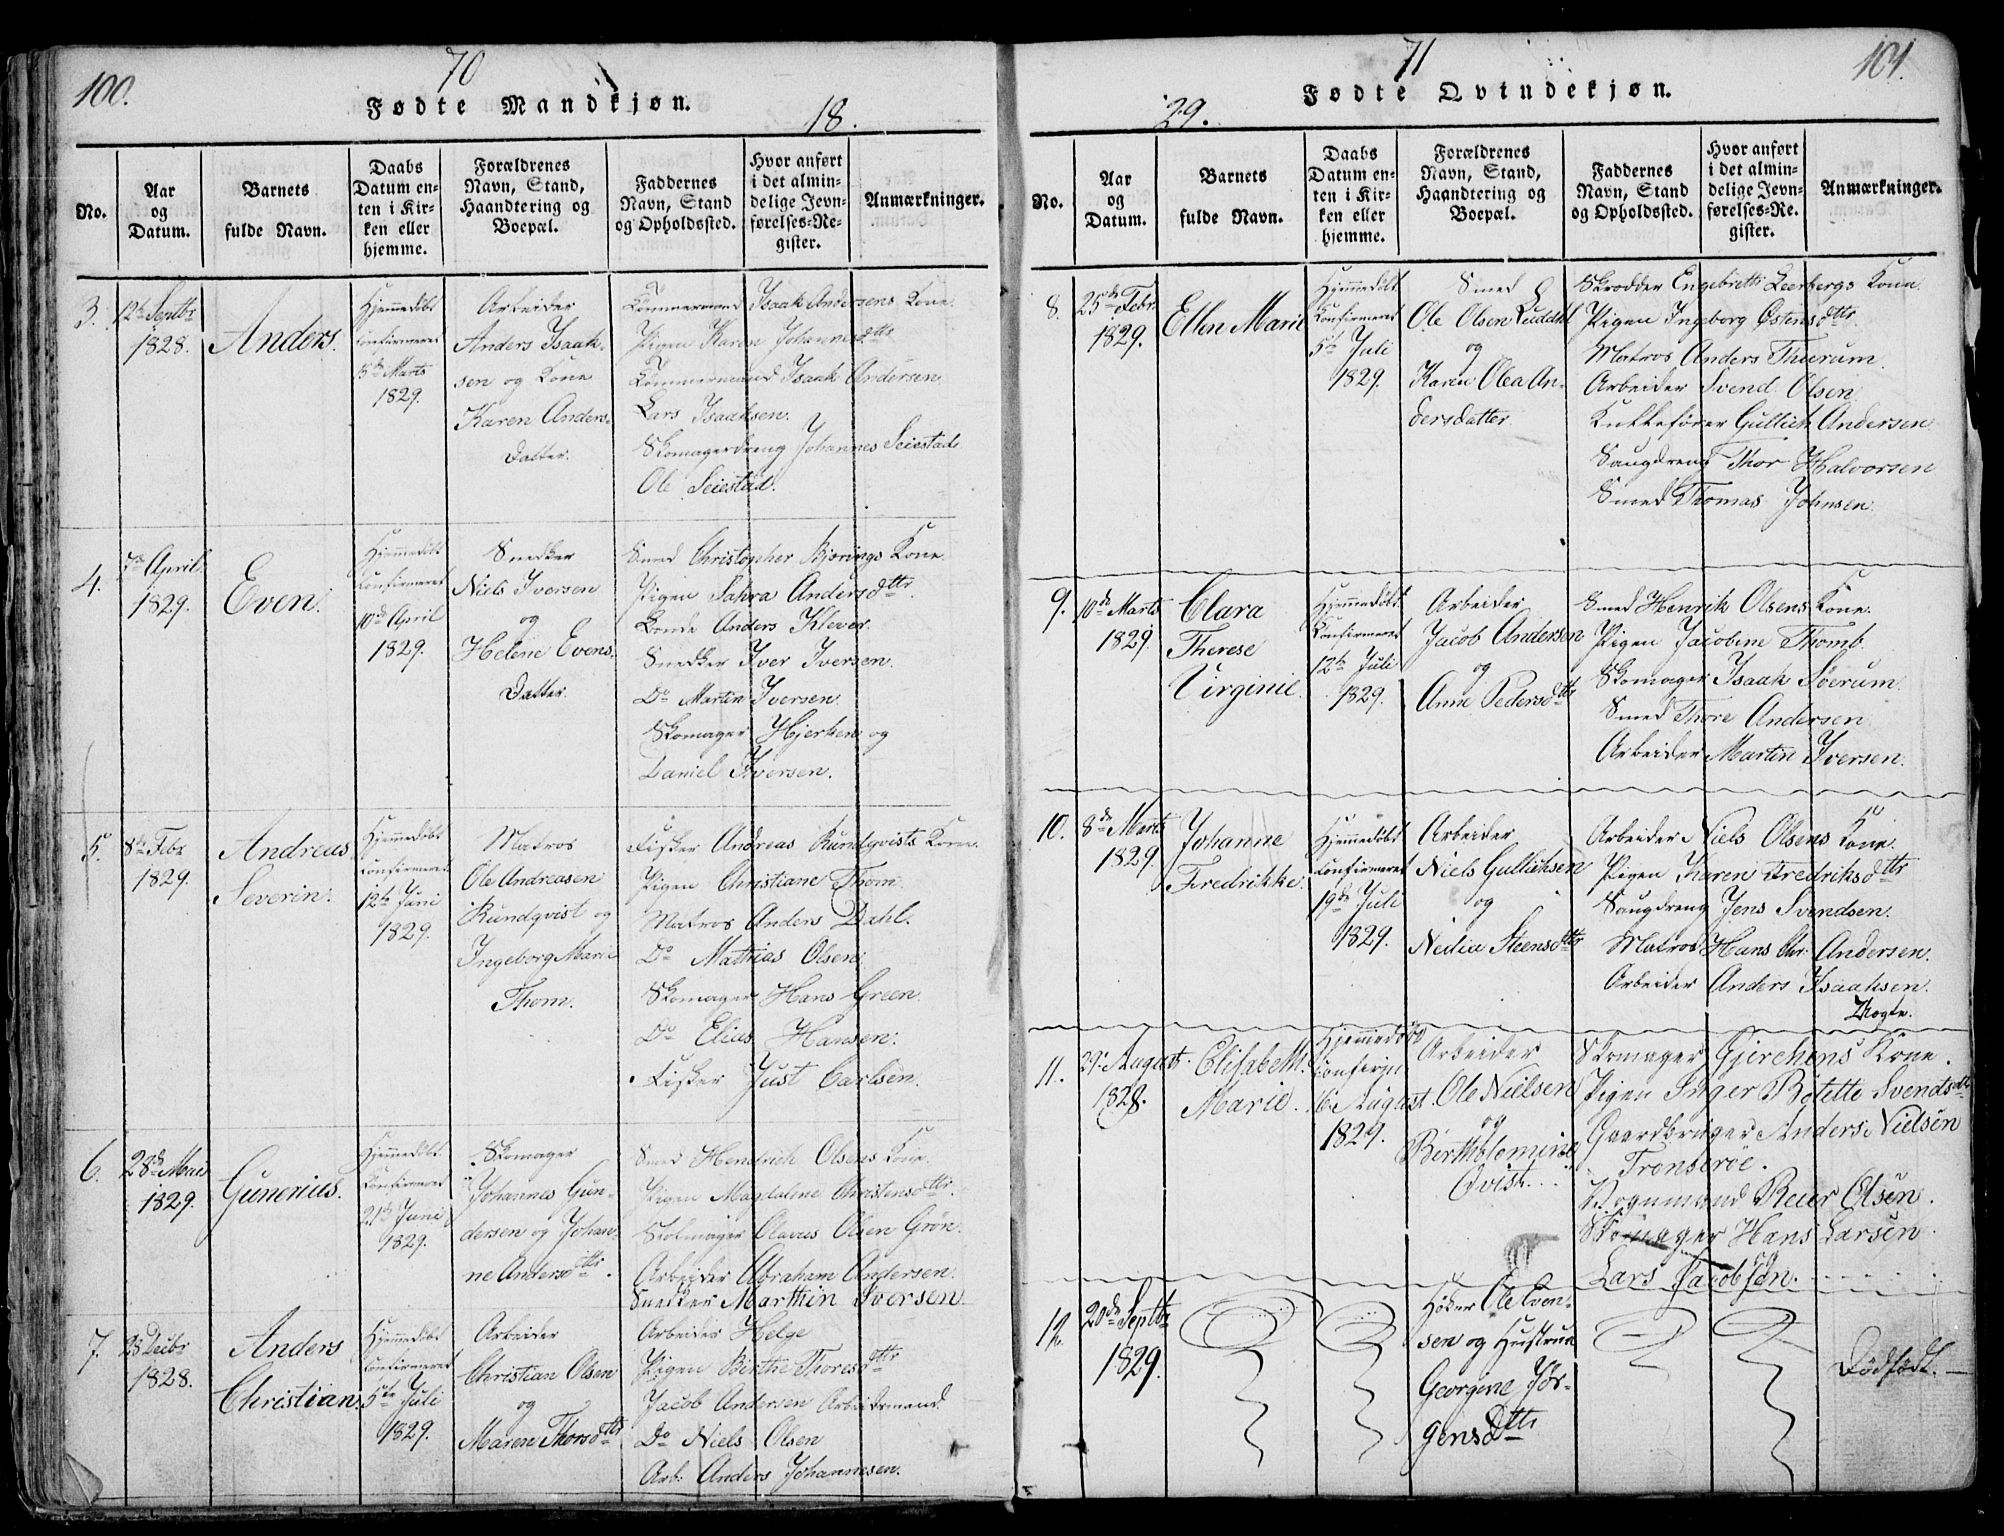 100.
70
Fødte Mandkjøn.
18.
No.
Aar
og
Datum.
Barnets
fulde Navn.
Daabs
Datum en-
ten i Kir-
ken eller
hjemme.
Forældrenes
Navn, Stand,
Haandtering og
Boepæl.
Faddernes
Navn, Stand
og Opholdssted.
Hvor anført
i det almin-
delige Jevn-
førelses-Re-
gister.
Anmærkninger.
3.
12te Septbr
1828.
Anders.
Hjemmedøbt
Confirmeret
15de Marts
1829.
Arbeider
Anders Isaak-
sen og Kone
Karen Anders-
datter.
Tømmermand Isaak Andersens Kone.
Pigen Karen Johannesdttr
Tømmermand Isaak Andersen
Lars Isaaksen.
Skomagerdreng Johannes Seiestad
Ole Seiestad.
4.
7de April
1829.
Even.
Hjemmedøbt
Confirmeret
10de April
1829.
Snedker
Niels Iversen
og
Helene Evens-
datter.
Smed Christopher Bjørings Kone.
Pigen Sahra Andersdttr.
Bonde Anders Klever.
Snedker Iver Iversen.
Do Martin Iversen.
Skomager Hjerken og
Daniel Iversen.
5.
8de Febr
1829.
Andreas
Severin.
Hjemmedøbt
Confirmeret
12te Juni
1829.
Matros
Ole Andreasen
Rundqvist og
Ingeborg Marie
Thom.
Fisker Andreas Rundqvists Kone.
Pigen Christiane Thom.
Matros Anders Dahl.
Do Mathias Olsen.
Skomager Hans Green.
Do Elias Hansen.
Fisker Just Carlsen.
6.
28de Mai
1829.
Gunerius.
Hjemmedøbt
Confirmeret
21de Juni
1829.
Skomager
Johannes Gun-
dersen og Johan-
ne Andersdttr.
Smed Hendrich Olsens Kone.
Pigen Magdalene Christensdttr.
Stolmager Olavus Olsen Grøn.
Arbeider Abraham Andersen.
Snedker Marthin Iversen.
7.
28 Decbr
1828.
Anders
Christian.
Hjemmedøbt
Confirmeret
5te Juli
1829.
Arbeider
Christian Olsen
og
Maren Thorsdttr
Arbeider Helge
Pigen Birthe Thoresdttr
Jacob Andersen Arbeidsmand.
Do Niels Olsen
Arb: Anders Johannesen.
71
101.
Fødte Qvindekjøn.
29.
No.
Aar
og
Datum.
Barnets
fulde Navn.
Daabs
Datum en-
ten i Kir-
ken eller
hjemme.
Forældrenes
Navn, Stand,
Haandtering og
Boepæl.
Faddernes
Navn, Stand
og Opholdssted.
Hvor anført
i det almin-
delige Jevn-
førelses-Re-
gister.
Anmærkninger.
8.
25de Febr
1829.
Ellen Marie
Hjemmedøbt
Confirmeret
5te Juli
1829.
Smed
Ole Olsen
og
Karen Olea An-
dersdatter
Skrædder Engebretts Leerbergs Kone
Pigen Ingeborg Østensdttr.
Matros Anders Thurum.
Arbeider Svend Olsen.
Gullich Andersen
Saugdreng Thor Halvorsen
Smed Thomas Johnsen.
9.
10de Marts
1829.
Clara
Therese
Virginie.
Hjemmedøbt
Confirmeret
12te Juli
1829.
Arbeider
Jacob Andersen
og
Anne Pedersdttr
Smed Henrik Olsens Kone.
Pigen Jacobine Thomb.
Skomager Isaak Søerum.
Smed Thore Andersen
Arbeider Martin Iversen.
10.
8de Marts
1829.
Johanne
Fredrikke.
Hjemmedøbt
Confirmeret
19de Juli
1829.
Arbeider
Niels Gullichsen
og
Nedia Steensdttr
Arbeider Niels Olsens Kone.
Pigen Karen Fredriksdttr
Saugdreng Jens Svendsen.
Matros Hans Chr: Andersen
Arbeider Anders Isaaksen.
11.
29. August.
1828.
Elisabeth
Marie.
Hjemmedøb
Confirm
16 August.
1829.
Arbeider
Ole Nielsen
og
Berthblomine
Qvist.
Skomager Gjerchens Kone.
Pigen Inger Botette Svendsdtr
Gaardbruger Anders Nielsen
Tronserøe.
Vognmand Reier Olsen.
Skomager Hans Larsen.
og
Lars Jacobsøn.
12.
20de Septbr
1829.
Høker Ole Even-
sen og Hustrue
Georgine Jør-
gensdttr
Dødfødt.